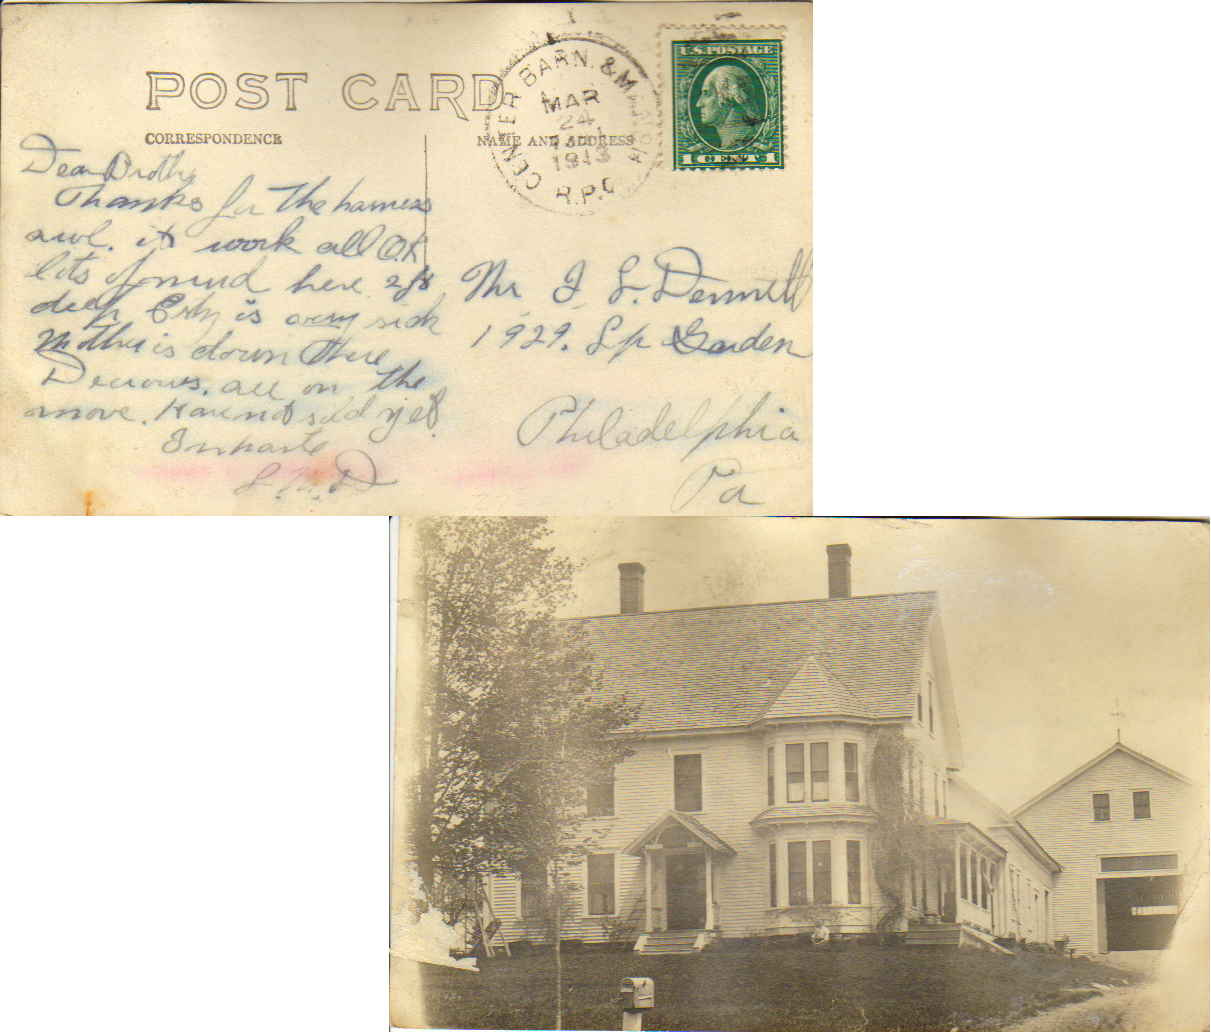 POST CARD
CORRESPONDENCE
NAME AND ADDRESS
CENTER BARN. & M
MAR
24
1913
R.P.O
U.S. POSTAGE
1 CENT 1
Dear Broth
Thanks for the harness
awl. it work all O.K
lots of mud here 2 ft
deep is very sick
Mother is down there
all on the
move. Have not sold yet.
In haste
Mr L. Dennett
1929. Garden
Philadelphia
Pa